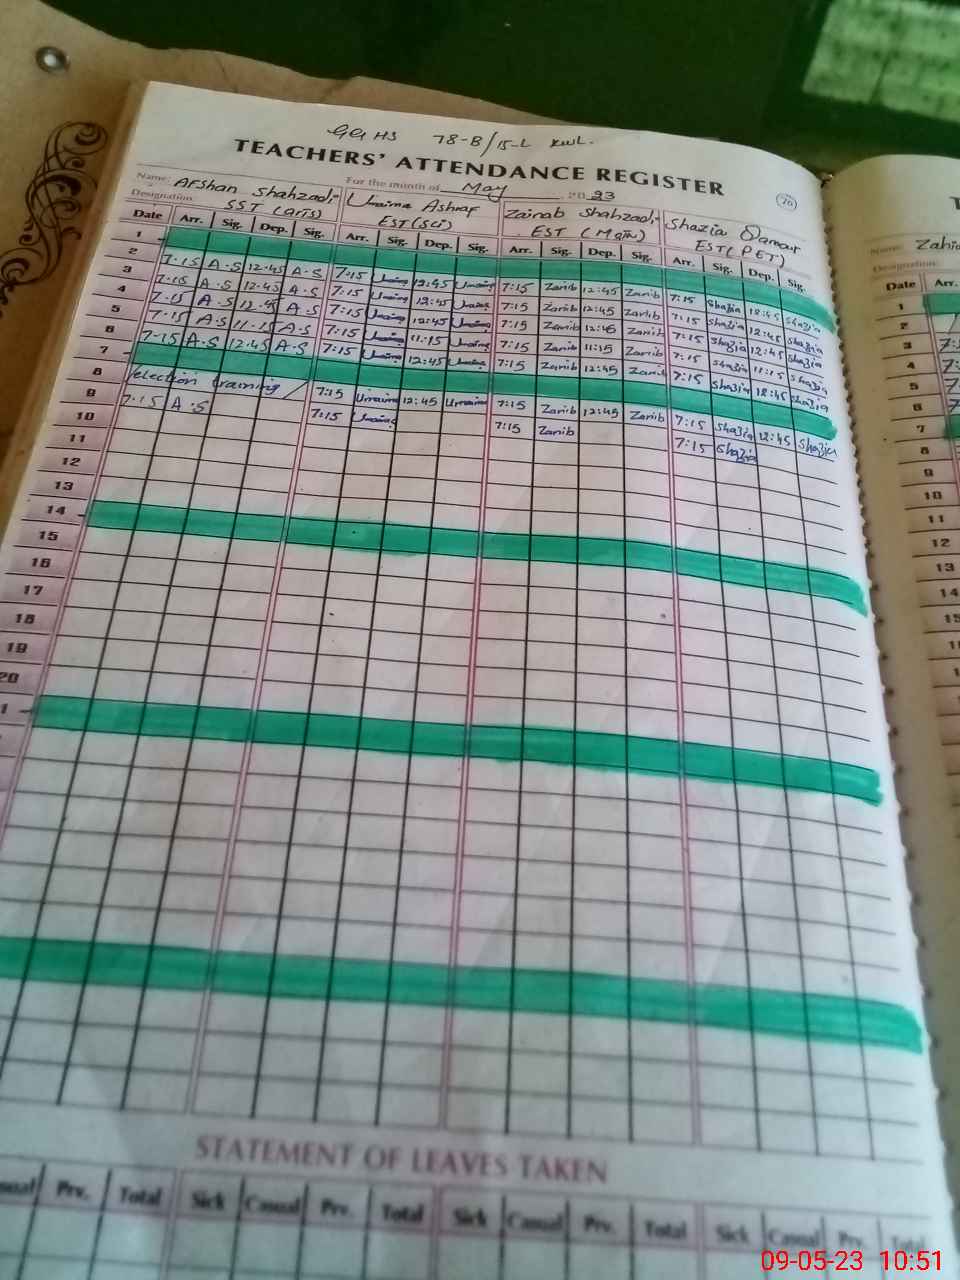 GGHS 78-B/15-L KWL.
TEACHERS' ATTENDANCE REGISTER
Name: Afshan Shahzadi For the month of May 2023 76
Designation: SST (arts) Umaima Ashraf EST (Sci) Zainab Shahzadi EST (Main) Shazia Qamar EST (PET)
Date Arr. Sig. Dep. Sig. Arr. Sig. Dep. Sig. Arr. Sig. Dep. Sig. Arr. Sig. Dep. Sig.
1
2 7-15 A.S 12-45 A.S 7:15 12:45 7:15 Zanib 12:45 Zanib 7:15 Shazia 12:45 Shazia
3 7-15 A.S 12-45 A.S 7:15 12:45 7:15 Zanib 12:45 Zanib 7:15 Shazia 12:45 Shazia
4 7-15 A.S 12-45 A.S 7:15 12:45 7:15 Zanib 12:45 Zanib 7:15 Shazia 12:45 Shazia
5 7-15 A.S 11-15 A.S 7:15 11:15 7:15 Zanib 11:15 Zanib 7:15 Shazia 11:15 Shazia
6 7-15 A.S 12-45 A.S 7:15 12:45 7:15 Zanib 12:45 Zanib 7:15 Shazia 12:45 Shazia
7
8 election training / 7:15 12:45 7:15 Zanib 12:45 Zanib 7:15 Shazia 12:45 Shazia
9 7-15 A.S 7:15 7:15 Zanib 7:15 Shazia
10
11
12
13
14
15
16
17
18
19
20
1
STATEMENT OF LEAVES TAKEN
Prv. Total Sick Casual Prv. Total Sick Casual Prv. Total Sick Casual Prv. Total
Name: Zahi
Designation:
Date Arr.
1
2
3
4
5
6
7
8
9
10
11
12
13
14
09-05-23 10:51